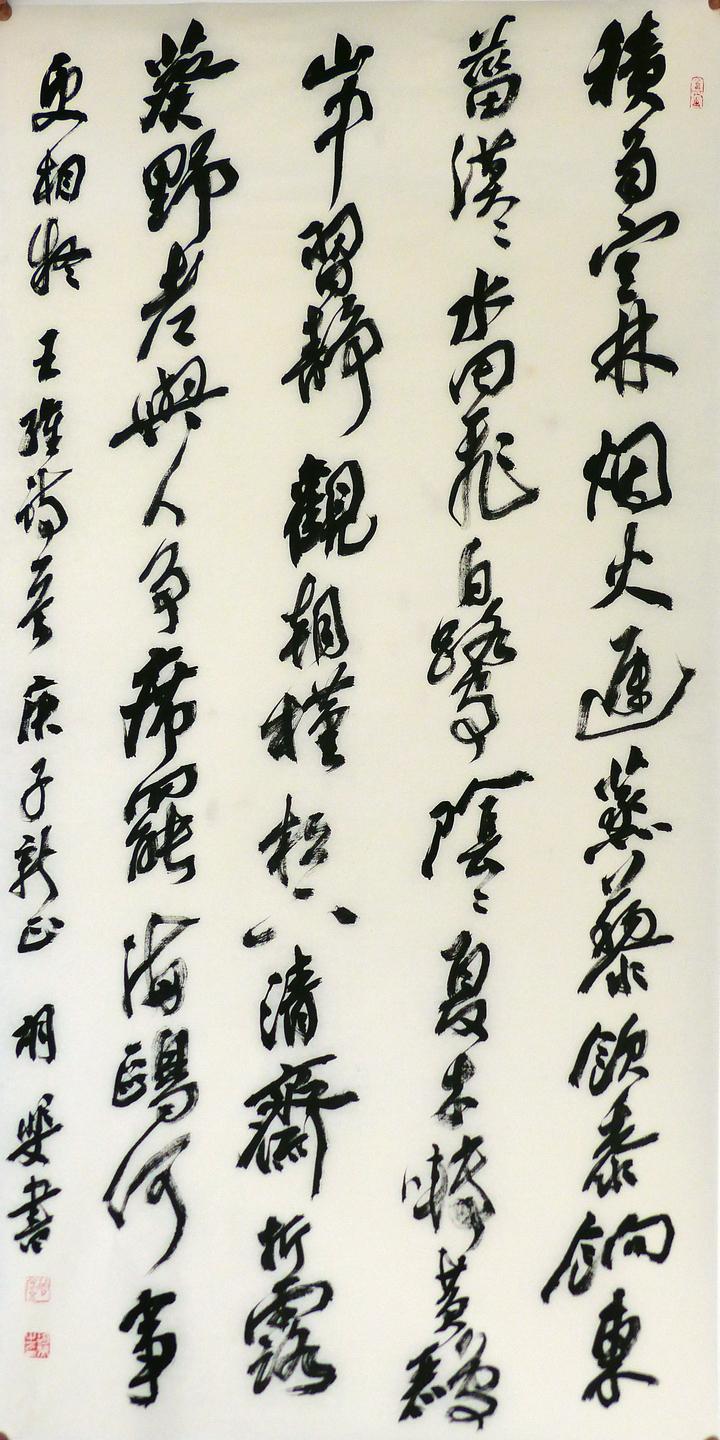 積雨空林烟火遲蒸藜炊黍餉東
菑漠〻水田飛白鷺陰〻夏木囀黃鸝
山中習靜觀朝槿松下清齋折露
葵野老與人争席罷海鷗何事
更相疑 王維詩 庚子新正 書